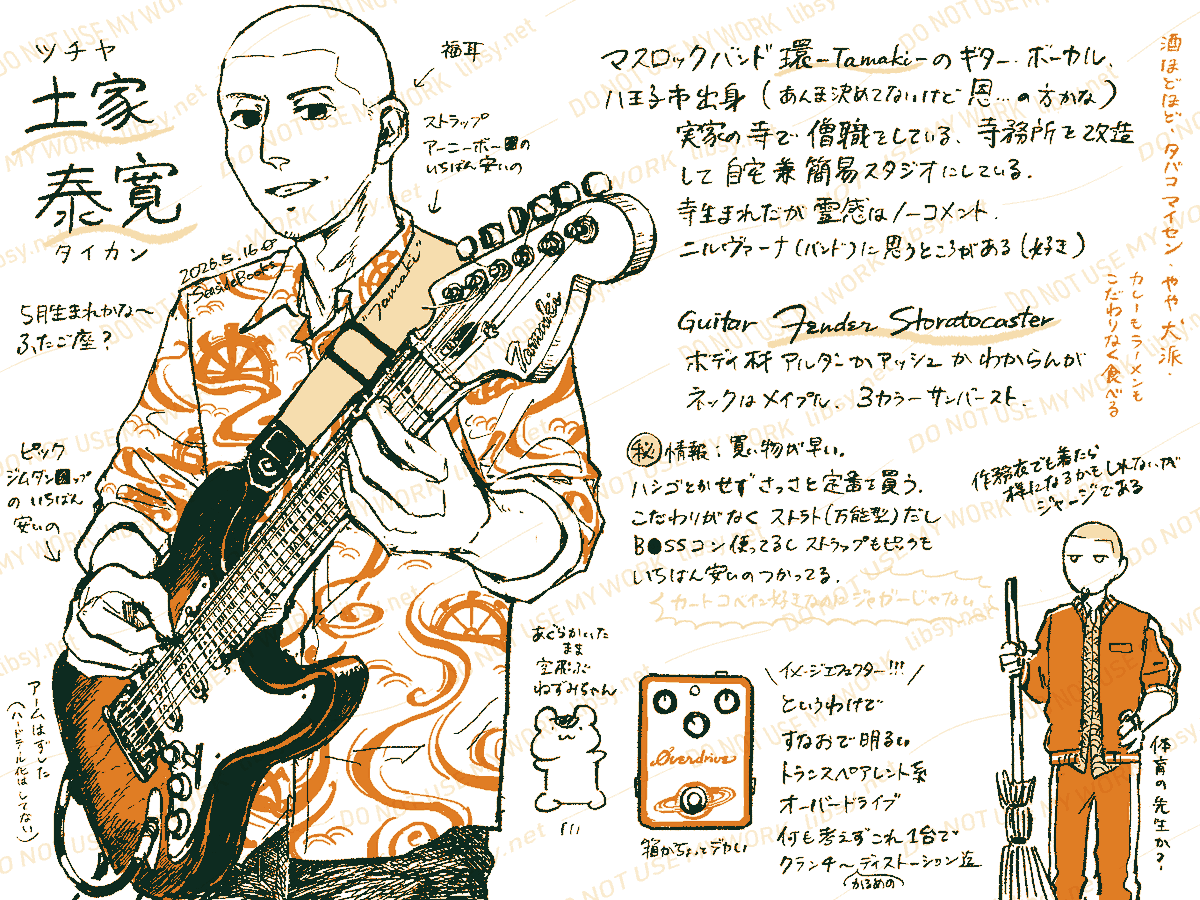 ツチヤ
土家
泰寛
タイカン
福耳
ストラップ
アーニーボールの
いちばん安いの
2026.5.16
SeasideRoots
"Tamaki"
Tamaki
5月生まれかな〜
ふたご座?
ピック
ジムダンロップ
の いちばん
安いの
アームはずした
(ハードテール化はしてない)
マスロックバンド 環-Tamaki-の ギター・ボーカル、
八王子市出身(あんま決めてないけど 恩…の方かな)
実家の寺で 僧職をしている、寺務所を改造
して 自宅兼簡易スタジオにしている.
寺生まれだが 霊感はノーコメント.
ニルヴァーナ(バンド)に思うところがある(好き)
Guitar Fender Storatocaster
ボディ材 アルダーかアッシュ かわからんが
ネックはメイプル、3カラーサンバースト.
㊙情報:買い物が早い。
ハシゴとかせず さっさと定番を買う.
こだわりがなく ストラト(万能型)だし
B●SSコン使ってるし ストラップもピックも
いちばん安いのつかってる.
カートコベイン好きなのにジャガーじゃない
酒ほどほど、タバコマイセン、やや犬派.
カレーもラーメンも
こだわりなく食べる
作務衣でも着たら
様になるかもしれないが
ジャージである
体育の先生か?
あぐらかいた
まま
空飛ぶ
ねずみちゃん
Overdrive
箱がちょっとデカい
\イメージエフェクター!!!/
というわけで
すなおで明るい
トランスペアレント系
オーバードライブ
何も考えずこれ1台で
クランチ〜ディストーション迄
(かるめの)
DO NOT USE MY WORK libsy.net